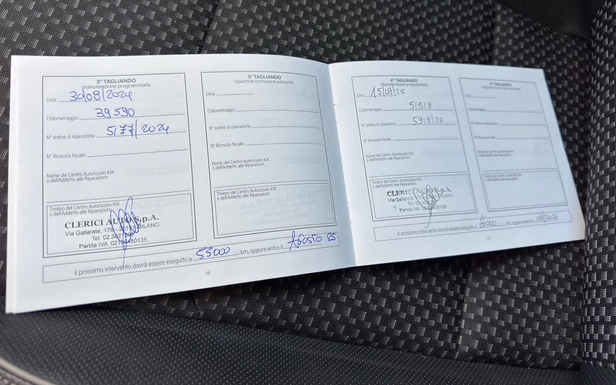 3° TAGLIANDO
manutenzione programmata
Data 30/08/2024
Chilometraggio 39590
N° ordine di riparazione 5177/2024
N° Ricevuta fiscale
Nome del Centro Autorizzato KIA
o dell'Addetto alle Riparazioni
Timbro del Centro Autorizzato KIA
o dell'Addetto alle Riparazioni
CLERICI AUTO S.p.A.
Via Gallarate, MILANO
Tel. 02.
Partita IVA
3° TAGLIANDO
ispezione corrosione passante
Data
Chilometraggio
N° ordine di riparazione
N° Ricevuta fiscale
Nome del Centro Autorizzato KIA
o dell'Addetto alle Riparazioni
Timbro del Centro Autorizzato KIA
o dell'Addetto alle Riparazioni
Il prossimo intervento dovrà essere eseguito a 55000 km, oppure entro il AGOSTO 25
4° TAGLIANDO
manutenzione programmata
Data
Chilometraggio
N° ordine di riparazione
N° Ricevuta fiscale
Nome del Centro Autorizzato KIA
o dell'Addetto alle Riparazioni
Timbro del Centro Autorizzato KIA
o dell'Addetto alle Riparazioni
CLERICI AUTO S.p.A.
Via Gallarate, MILANO
Tel. 02.
Partita IVA
4° TAGLIANDO
ispezione corrosione passante
Chilometraggio
N° ordine di riparazione
N° Ricevuta fiscale
Nome del Centro Autorizzato KIA
o dell'Addetto alle Riparazioni
Timbro del Centro Autorizzato KIA
o dell'Addetto alle Riparazioni
Il prossimo intervento dovrà essere eseguito a km, oppure entro il